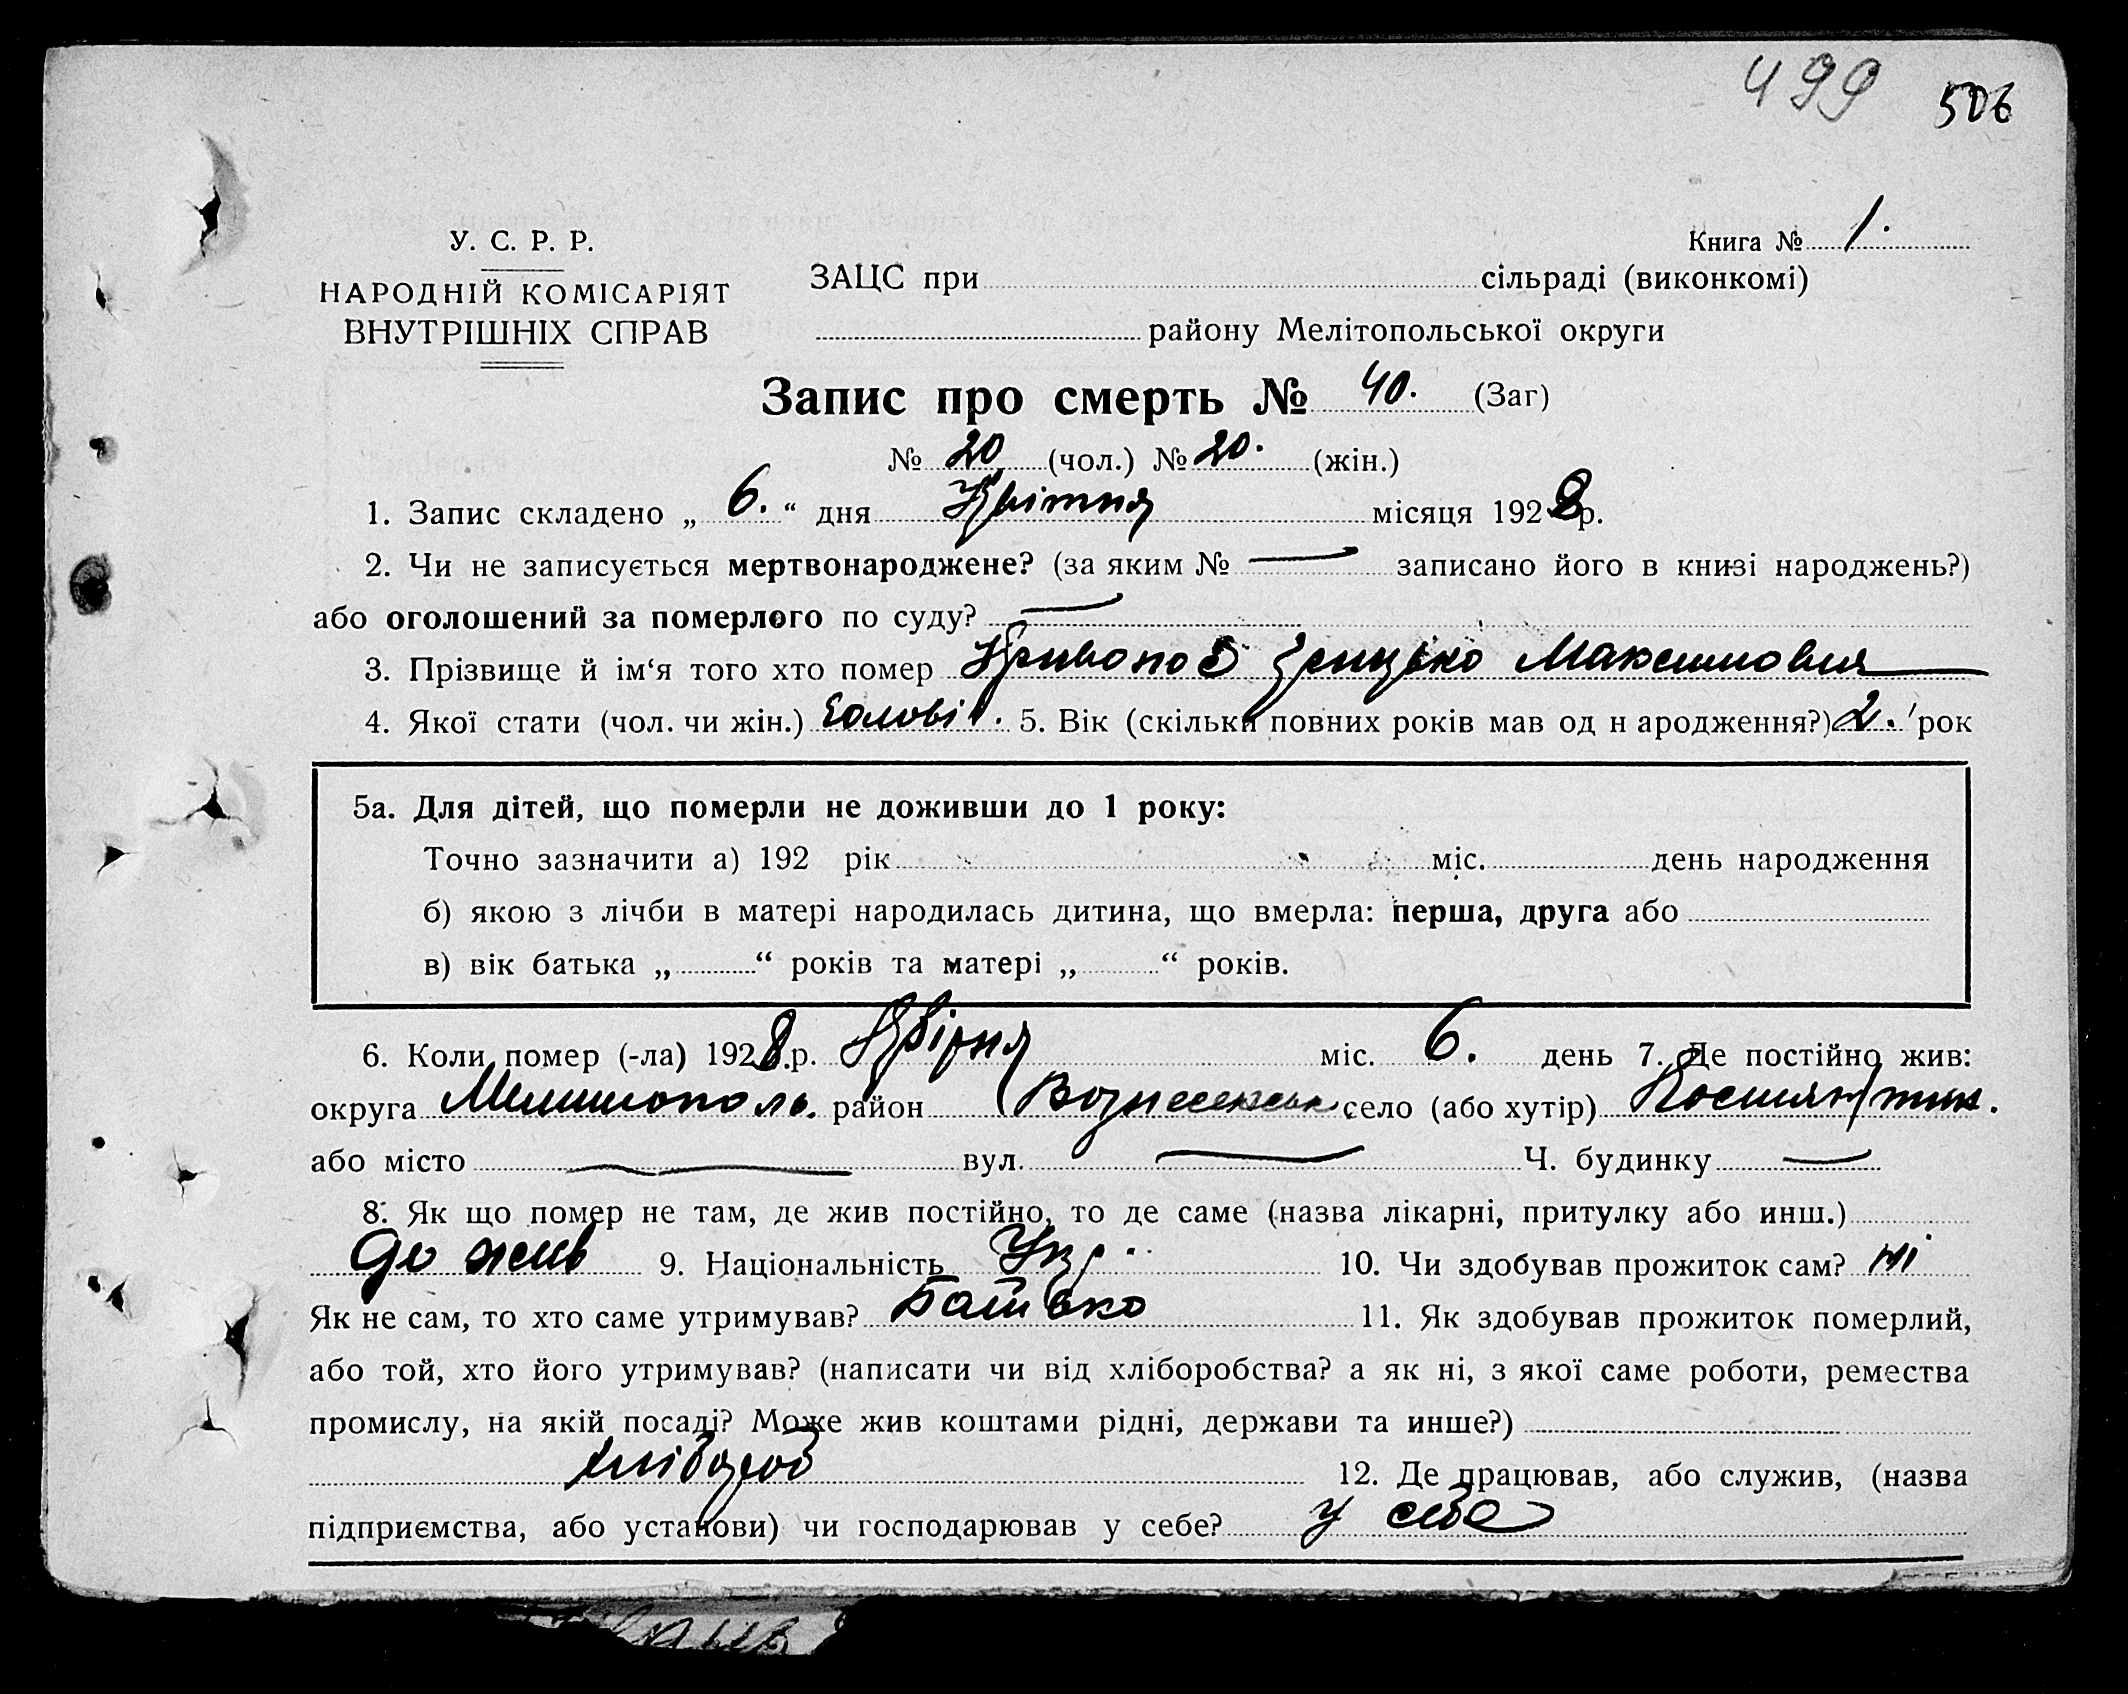 499 506
У. С. Р. Р.
НАРОДНІЙ КОМІСАРІЯТ
ВНУТРІШНІХ СПРАВ
Книга № 1.
ЗАЦС при сільраді (виконкомі)
району Мелітопольської округи
Запис про смерть № 40. (Заг)
№ 20 (чол.) № 20. (жін.)
1. Запис складено „ 6. “ дня Квітня місяця 1928 р.
2. Чи не записується мертвонароджене? (за яким № — записано його в книзі народжень?)
або оголошений за померлого по суду? —
3. Прізвище й ім‘я того хто помер Грицько Максимовия
4. Якої стати (чол. чи жін.) Чолові. 5. Вік (скільки повних років мав од н ародження?) 2. рок
5а. Для дітей, що померли не доживши до 1 року:
Точно зазначити а) 192 рік міс. день народження
б) якою з лічби в матері народилась дитина, що вмерла: перша, друга або
в) вік батька „ “ років та матері „ “ років.
6. Коли помер (-ла) 1928.р. міс. 6. день 7. Де постійно жив:
округа Мелитополь. район Вознесенськ село (або хутір)
або місто — вул. — Ч. будинку —
8. Як що помер не там, де жив постійно, то де саме (назва лікарні, притулку або инш.)
де жив 9. Національність Укр. 10. Чи здобував прожиток сам? ні
Як не сам, то хто саме утримував? Батько 11. Як здобував прожиток померлий,
або той, хто його утримував? (написати чи від хліборобства? а як ні, з якої саме роботи, ремества
промислу, на якій посаді? Може жив коштами рідні, держави та инше?)
хлібороб 12. Де працював, або служив, (назва
підприємства, або установи) чи господарював у себе? у себе